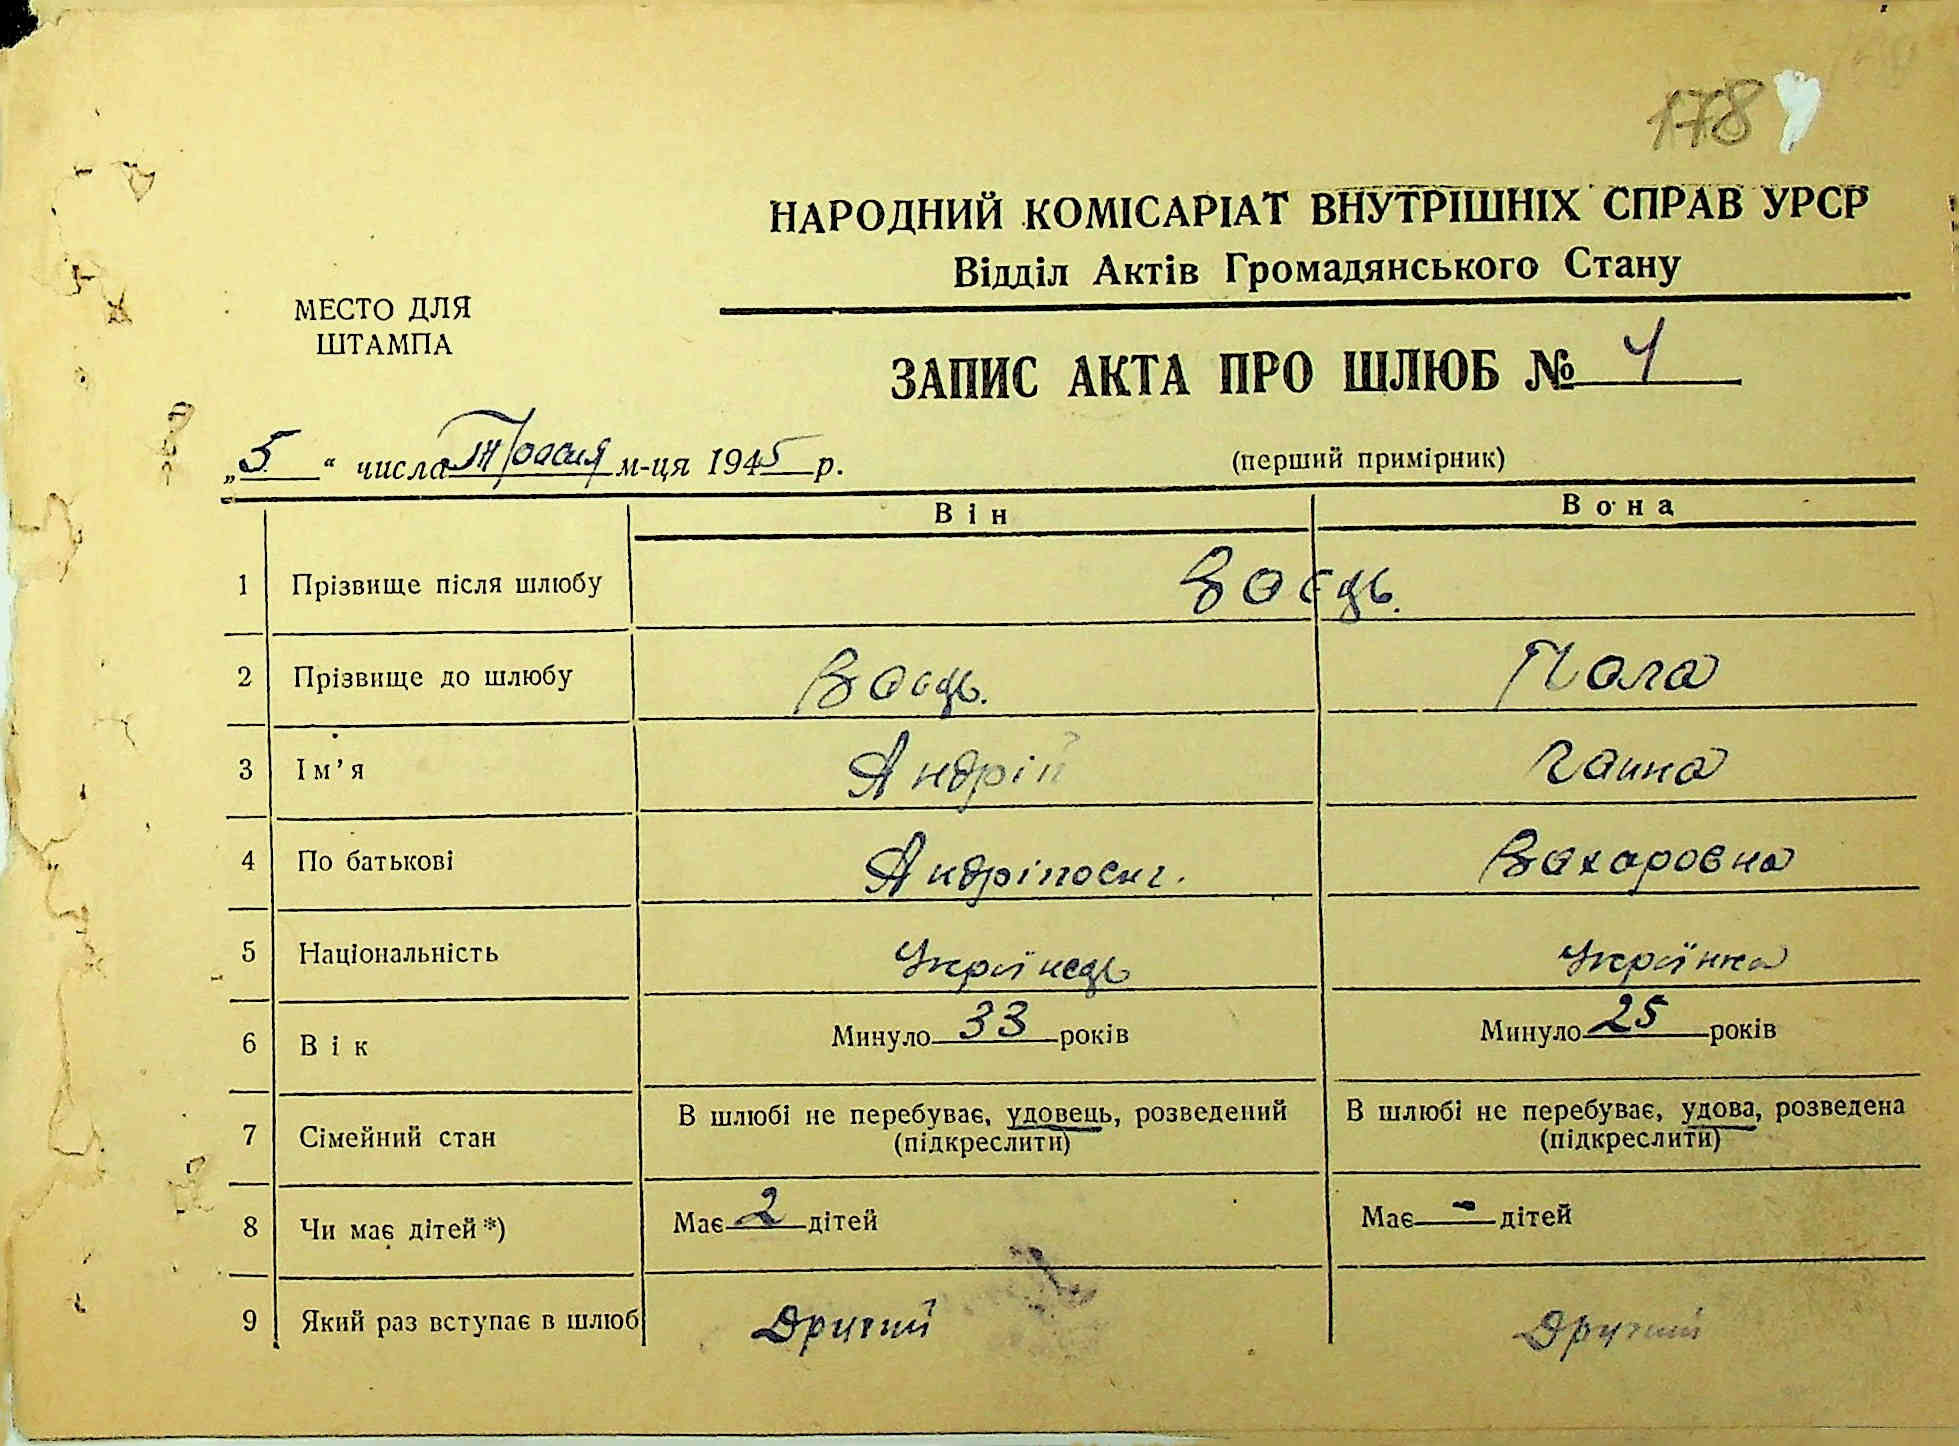 178
НАРОДНИЙ КОМІСАРІАТ ВНУТРІШНІХ СПРАВ УРСР
Відділ Актів Громадянського Стану
МЕСТО ДЛЯ
ШТАМПА
ЗАПИС АКТА ПРО ШЛЮБ № 4
„5“ числа Травня м-ця 1945 р.
(перший примірник)
Він Вона
1 Прізвище після шлюбу Заєць.
2 Прізвище до шлюбу Заєць. Пала
3 Ім'я Андрій Ганна
4 По батькові Андріпович. Захаровна
5 Національність Українець Українка
6 Вік Минуло 33 років Минуло 25 років
7 Сімейний стан В шлюбі не перебуває, удовець, розведений (підкреслити) В шлюбі не перебуває, удова, розведена (підкреслити)
8 Чи має дітей*) Має 2 дітей Має - дітей
9 Який раз вступає в шлюб Другий Другий